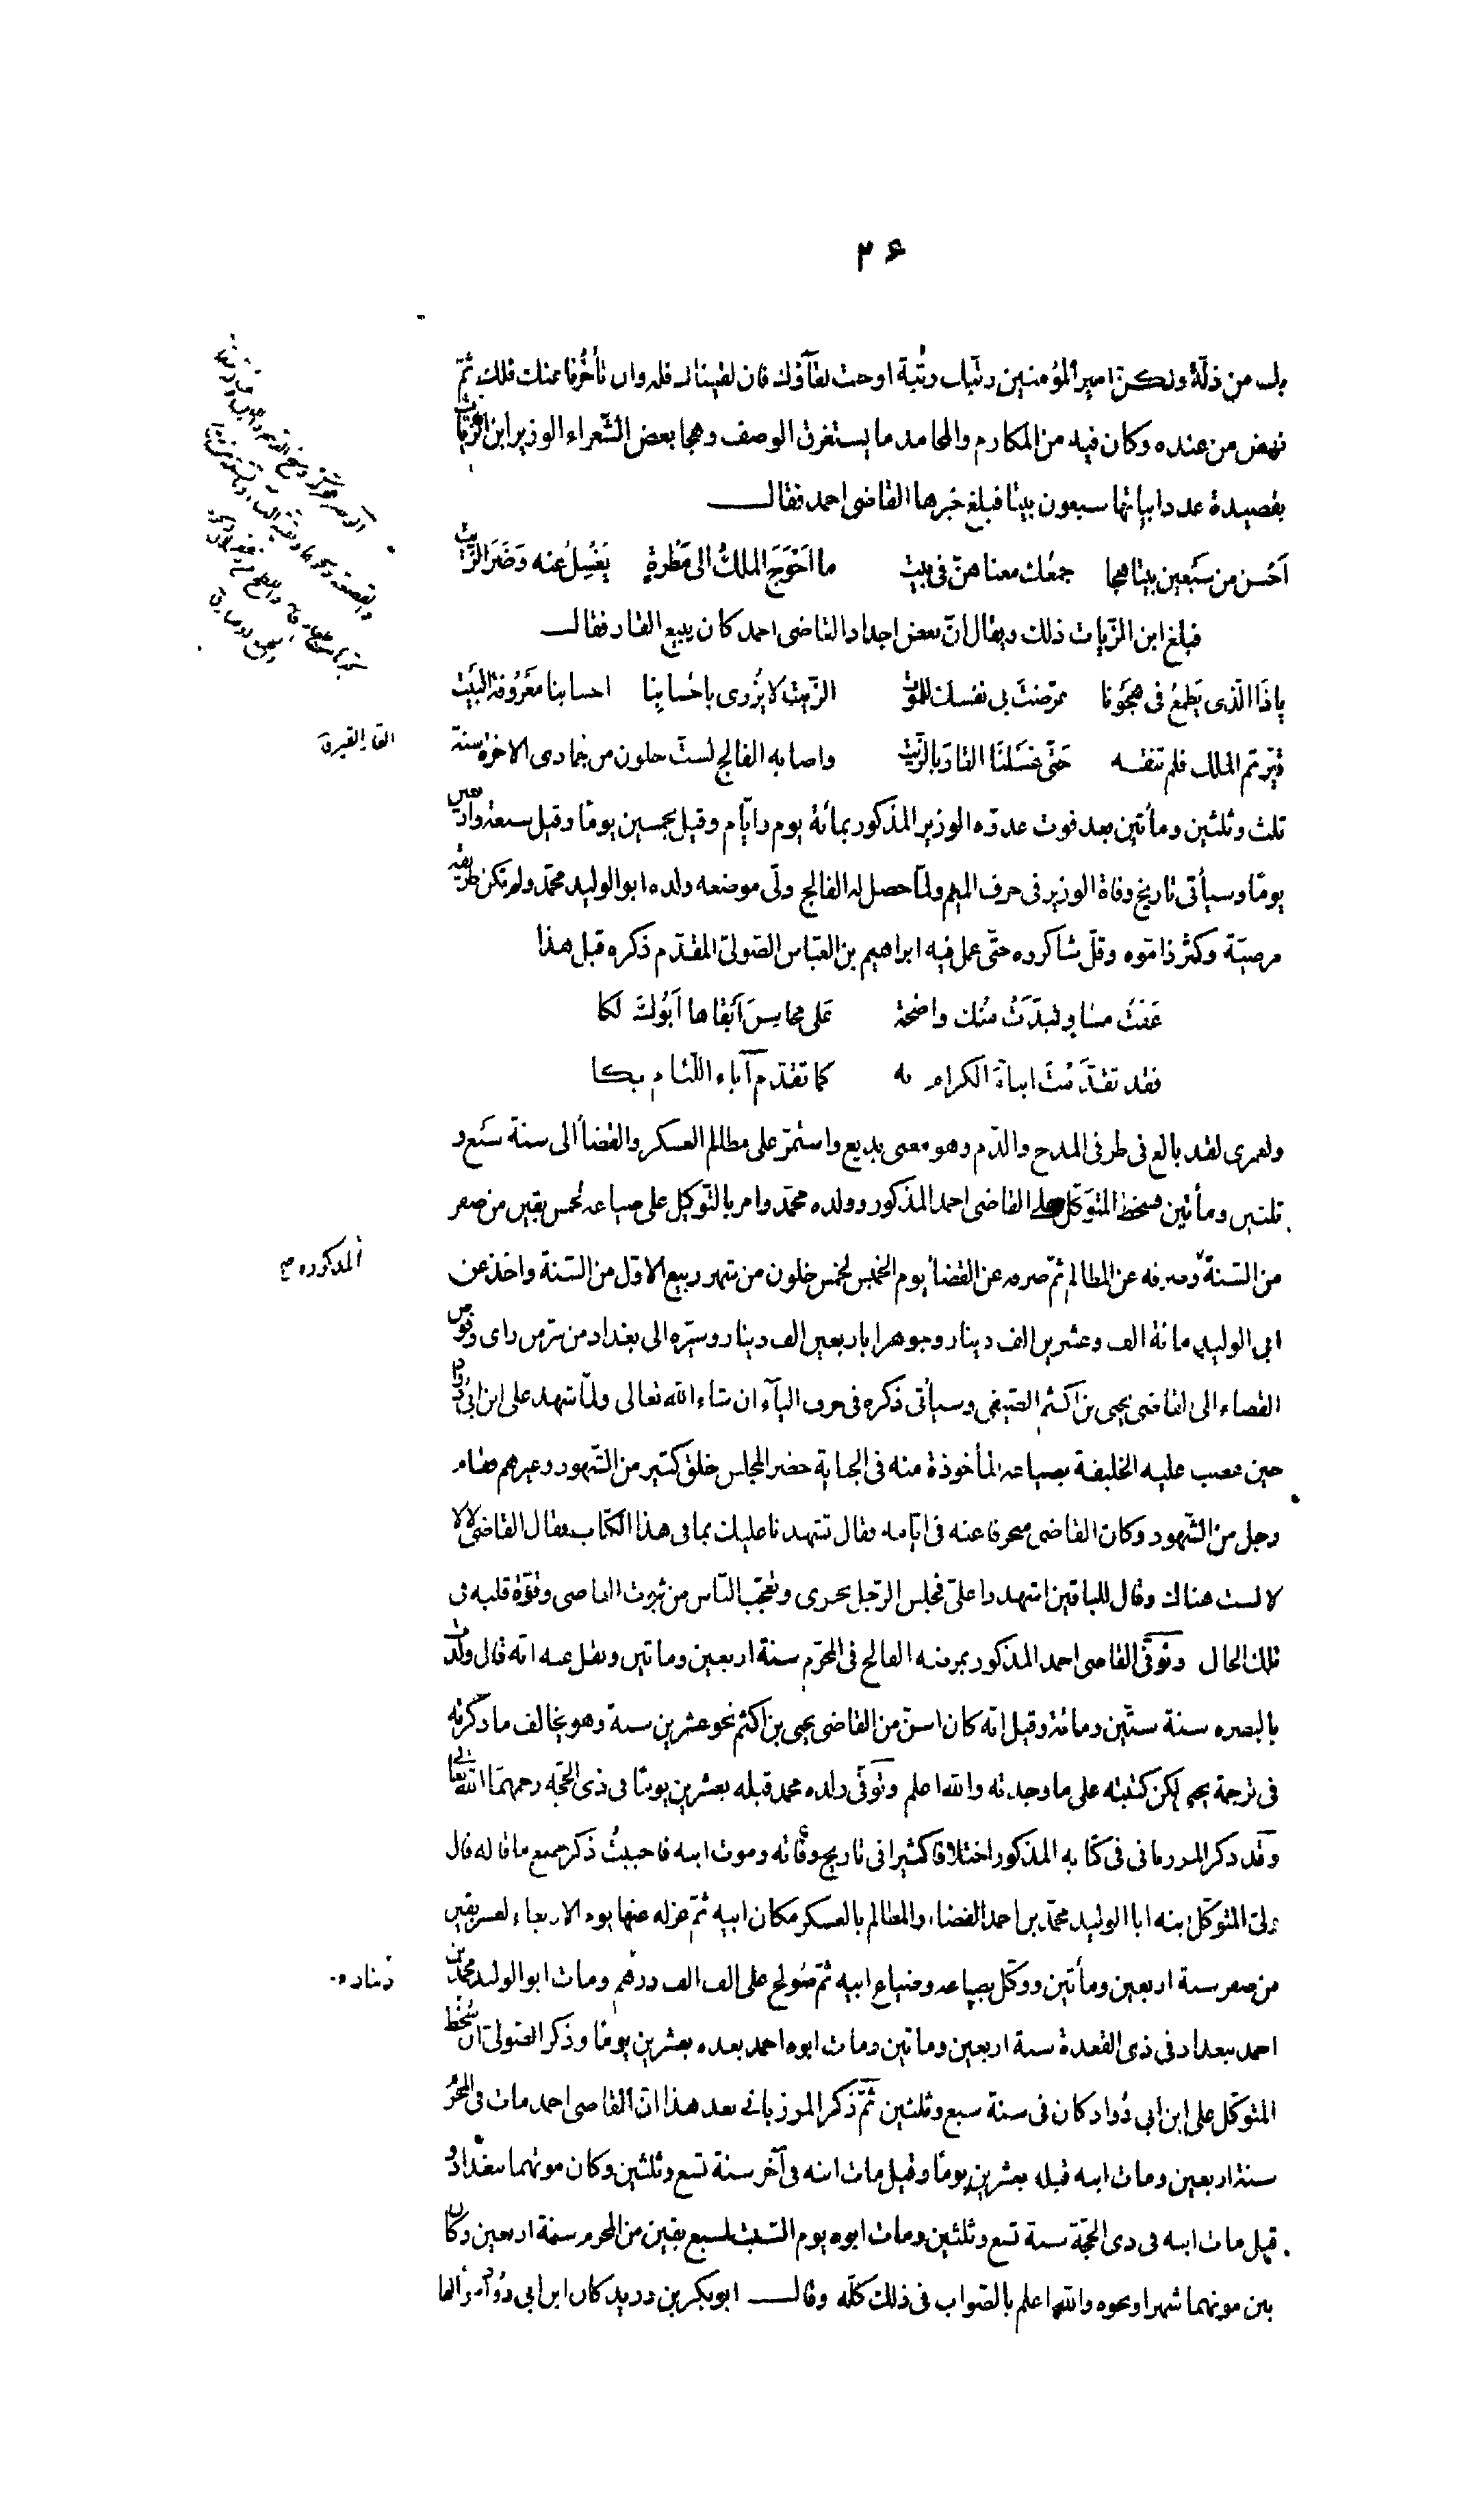 ٢۶
بك من ذلّة ولكنّ امير المؤمنين رتّبك رتبة اوجبت لقآؤك فان لقيناك فله وان تأخّرنا عنك فلك ثمّ
نهض من عنده وكان فيه من المكارم والمحامد ما يستغرق الوصف وهجا بعض الشّعراء الوزير ابن الزيات
بقصيدة عدد ابياتها سبعون بيتا فبلغ خبرها القاضى احمد فقال
اَحْسن من سَبْعين بيتا هجا جمعُك معناهنّ فى بيت ما اَحْوَجَ الملكَ الى مَطْرةٍ يَغْسِلُ عنه وَضَرَ الزّيت
فبلغ ابن الزّيات ذلك ويقال انّ بعض اجداد القاضى احمد كان يبيع القار فقال
ياذَا الّذى يَطْمعُ فى هَجْوِنا عرّضْتَ بى نفسك للموت الزّيت لا يُزْرى باحْسابنا احسابنا مَعْرُوفة البَيْت
قيّرتم الملك فلم ننقه حَتّى غسَلنَا القارَ بالزّيت واصابه الفالج لستّ خلون من جمادى الاخرة سنة
القار القير ق
ثلث وثلثين ومأتين بعد فوت عدوّه الوزير المذكور بمائة يوم وايّام وقيل بخمسين يومًا وقيل سبعة واربعين
يومًا وسيأتى تاريخ وفاة الوزير فى حرف الميم ولمّا حصل له الفالج ولّى موضعه ولده ابو الوليد محمّد ولم تكن طريقته
مرضيّة وكثر ذامّوه وقلّ شاكروه حتّى عمل فيه ابراهيم بن العبّاس الصّولىّ المقدّم ذكره قبل هذا
عَفَتْ مساوٍ تبدّت منك واضحة عَلى محاسِنَ اَبْقاها اَبُوكَ لكا
فقد تقدّمْتَ ابناءَ الكرام به كما تقدّم آباء اللّئام بكا
ولعمرى لقد بالغ فى طرفى المدح والذّم وهو معنى بديع واستمرّ على مظالم العسكر والقضآ الى سنة سَبْع و
ثلثين ومأتين فسخط المتوَكّل على القاضى احمد المذكور وولده محمّد وامر بالتّوكيل على ضياعه لخمس بقين من صفر
من السّنة وصرفه عن المظالم ثمّ صرفه عن القضآ يوم الخميس لخمس خلون من شهر ربيع الاوّل من السّنة واخذ عن
المذكورة صح
ابى الوليد مائة الف وعشرين الف دينار وجوهرا باربعين الف دينار وسيّره الى بغداد من سرّ من راى وفوّض
القضاء الى القاضى يحيى بن اكثم الصّيفى وسيأتى ذكره فى حرف اليآء ان شاء الله تعالى ولمّا شهد على ابن ابى دؤاد
حين غضب عليه الخليفة بضياعه المأخوذة منه فى الجباية حضر المجلس خلق كثير من الشّهود وغيرهم فقام
رجل من الشّهود وكان القاضى منحرفا عنه فى ايّامه فقال تشهدنا عليك بما فى هذا الكتاب فقال القاضى لا لا
لا لست هناك وقال للباقين اشهدوا علىّ فجلس الرّجل بخزى وتعجّب النّاس من ثبوت القاضى وقوّة قلبه فى
تلك الحال وتوفّى القاضى احمد المذكور بمرضه الفالج فى المحرّم سنة اربعين وماتين ونقل عنه انّه قال ولدت
بالبصره سنة ستّين ومائة وقيل انّه كان اسنّ من القاضى يحيى بن اكثم نحو عشرين سنة وهو يخالف ما ذكرته
فى ترجمة يحيى لكن كتبته على ما وجدته والله اعلم وتوفّى ولده محمد قبله بعشرين يومًا فى ذى الحجّه رحمهما الله تعالى
وقد ذكر المرزبانى فى كتابه المذكور اختلافا كثيرا فى تاريخ وفاته وموت ابنه فاحببتُ ذكر جميع ما قاله قال
ولّى المتوكّل ابنه ابا الوليد محمّد بن احمد القضاء والمظالم بالعسكر مكان ابيه ثمّ عزله عنها يوم الاربعاء لعشر بقين
من صفر سنة اربعين ومأتين ووكّل بضياعه وضياع ابيه ثمّ صُولح على الف الف درهم ومات ابو الوليد محمّد بن
دينار
احمد ببغداد فى ذى القعدة سنة اربعين وماتين ومات ابوه احمد بعده بعشرين يومًا وذكر الصّولىّ انّ سُخط
المتوكّل على ابن ابى دُواد كان فى سنة سبع وثلثين ثمّ ذكر المرزبانى بعد هذا انّ القاضى احمد مات فى المحرّم
سنة اربعين ومات ابنه قبله بعشرين يومًا وقيل مات ابنه فى آخر سنة تسع وثلثين وكان موتهما ببغداد و
قيل مات ابنه فى ذى الحجّة سنة تسع وثلثين ومات ابوه يوم السّبت لسبع بقين من المحرم سنة اربعين وكان
بين موتهما شهر او نحوه والله اعلم بالصّواب فى ذلك كلّه وقال ابو بكر بن دريد كان ابن ابى دُوادٍ مؤالفا